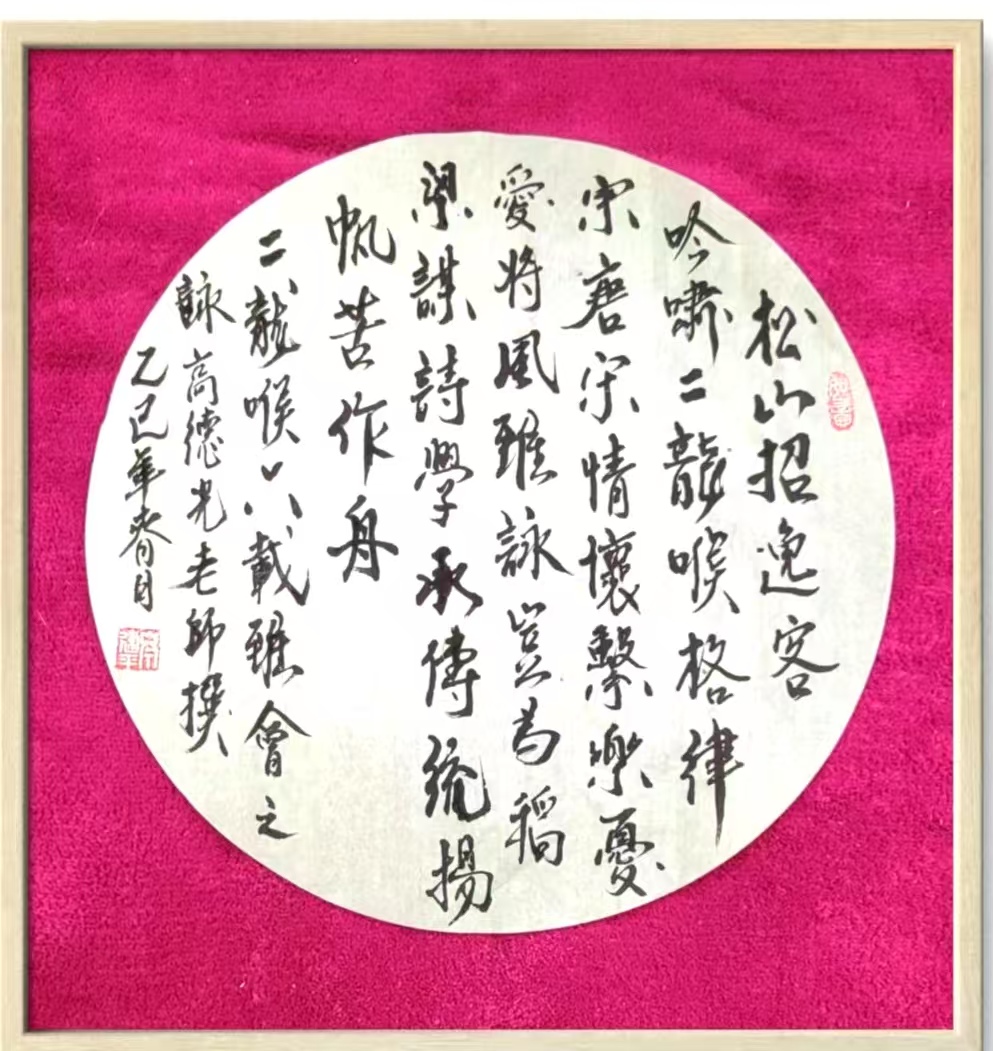 松山招逸客
吟嘯二龍喉格律
宗唐宋情懷繫樂憂
愛將風雅詠豈為稻
粱謀詩學承傳統揚
帆苦作舟
二龍喉八載雅會之
詠高德光老師撰
乙巳年春月